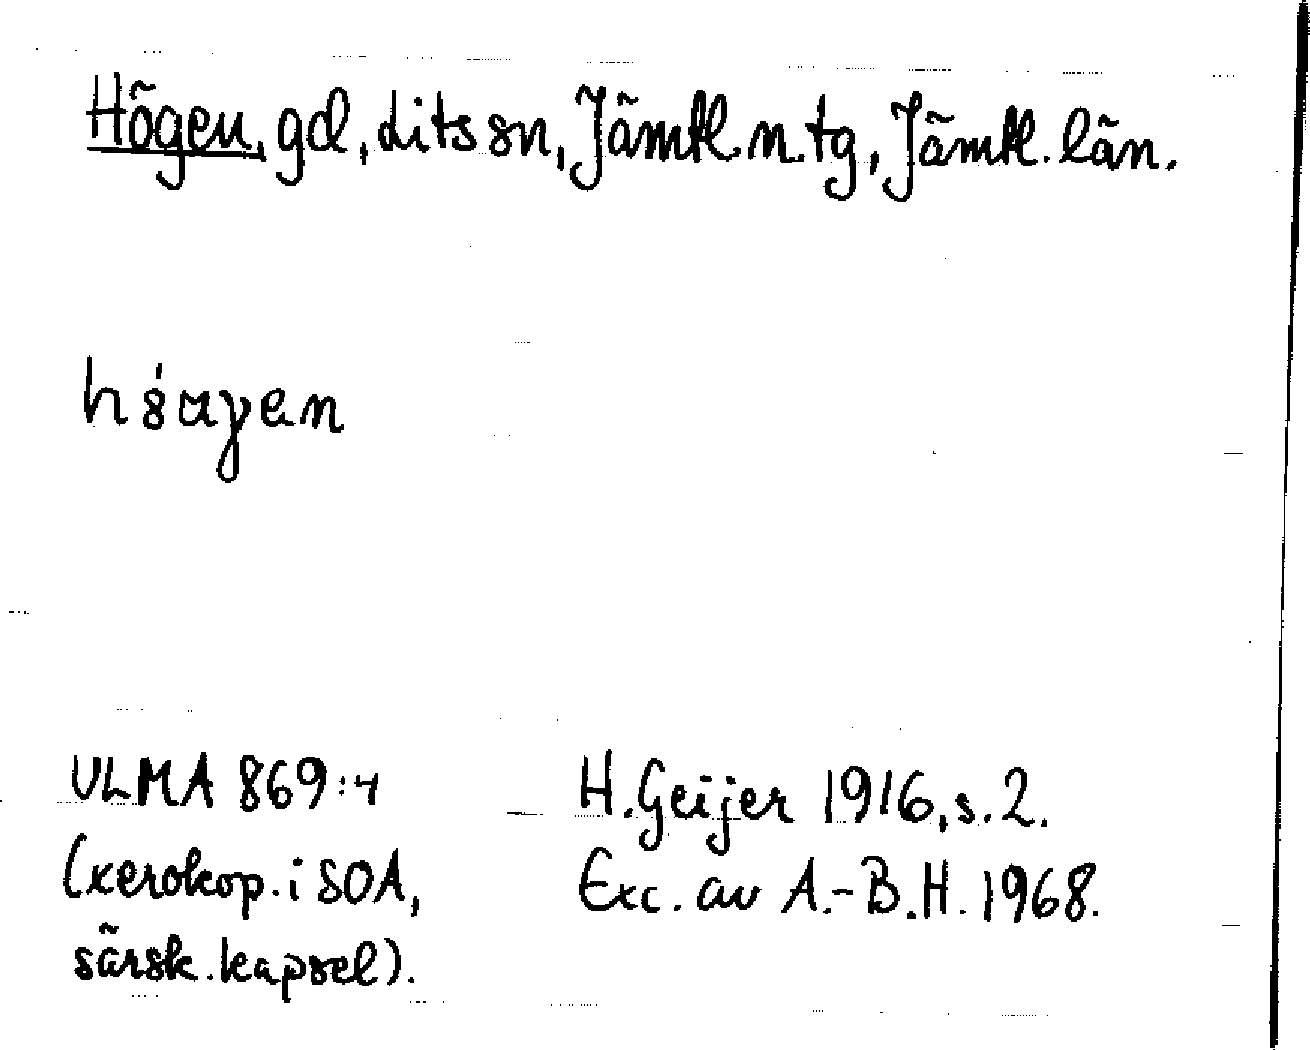 Högen, gd, Lits sn, Jämtl. n. tg, Jämtl. län.
ULMA 869:4
(xerokop. i SOA,
särsk. kapsel).
H. Geijer 1916, s. 2.
Exc. av A.-B.H. 1968.